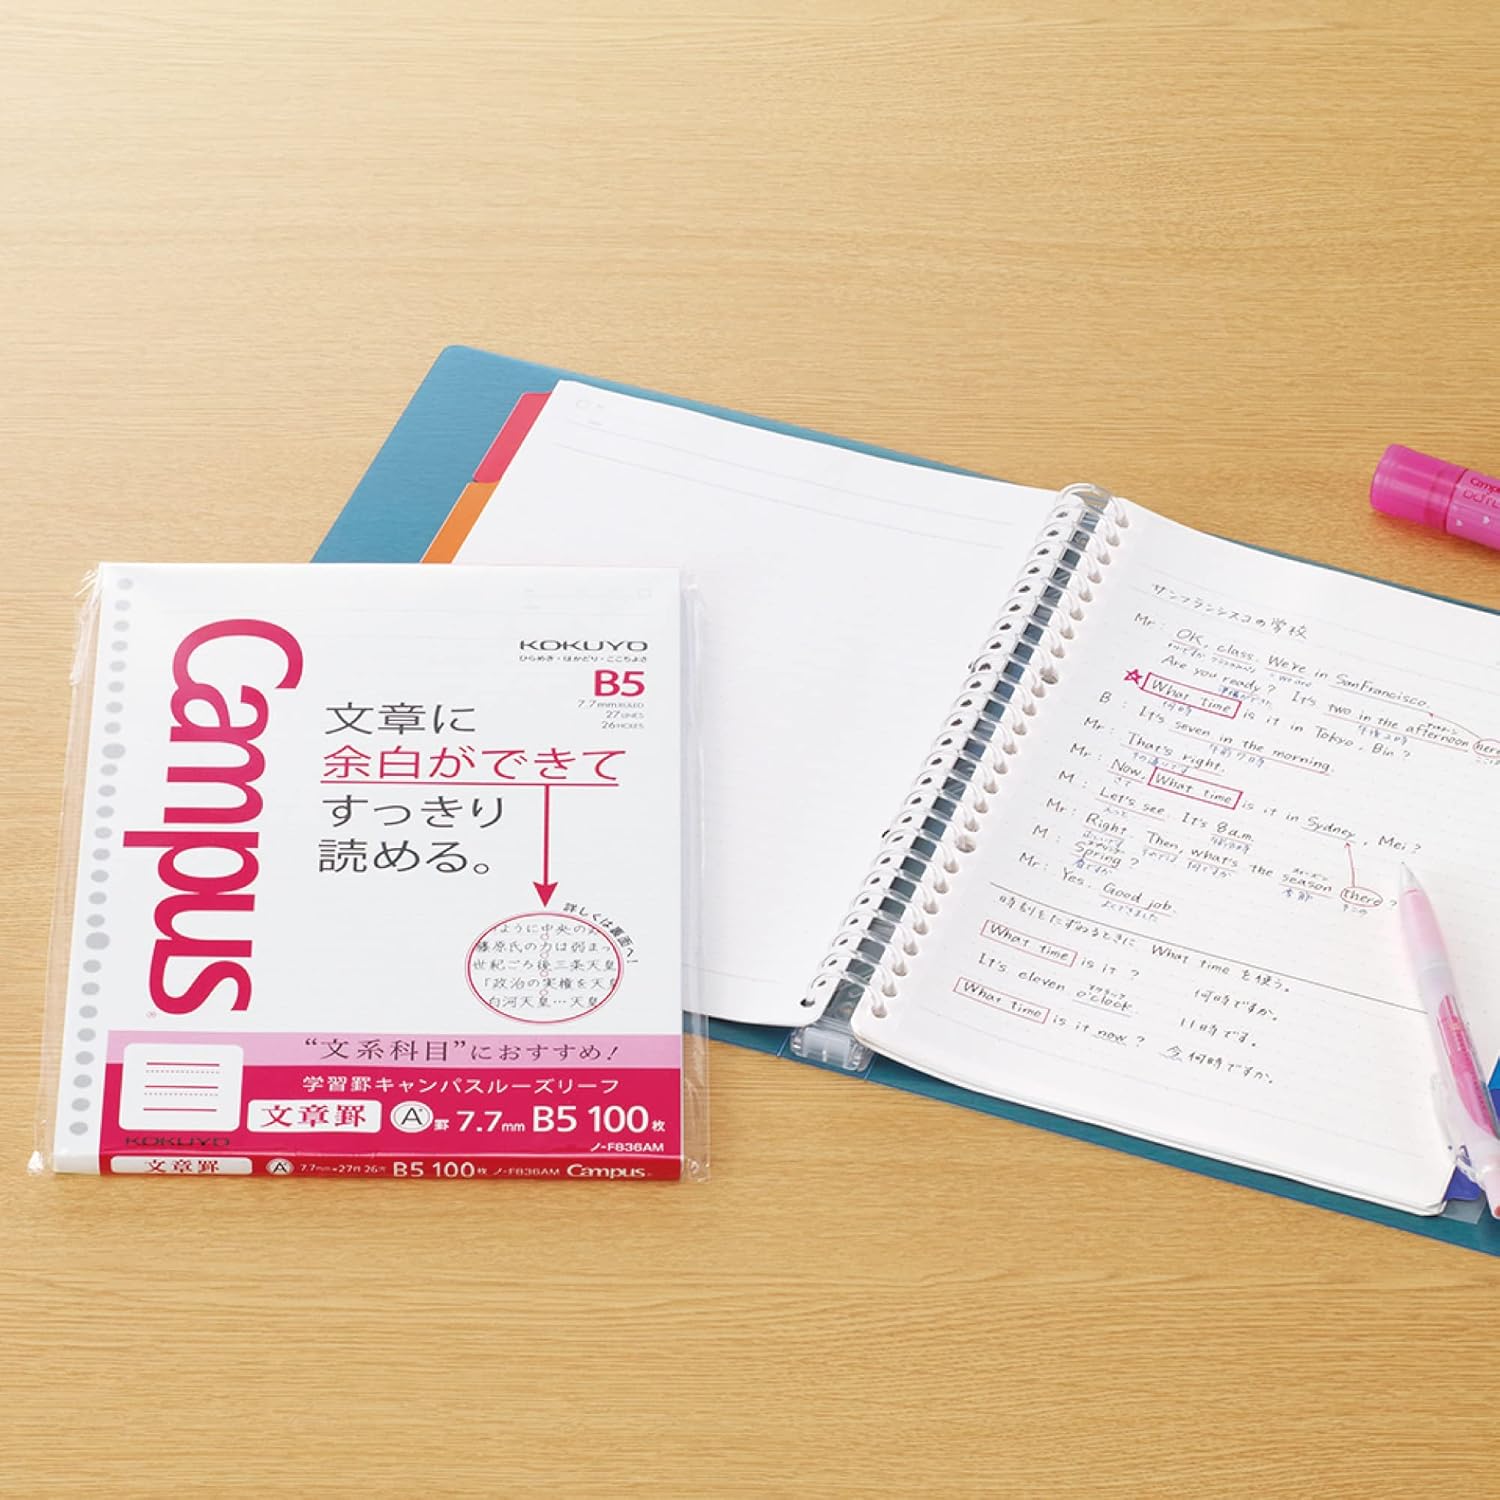 Campus
KOKUYO
ひらめき・はかどり・ここちよさ
B5
7.7mm RULED
27 LINES
26 HOLES
文章に
余白ができて
すっきり
読める。
詳しくは裏面へ!
ように中央の
藤原氏の力は弱まっ
世紀ごろ後三条天皇
「政治の実権を天
白河天皇…天皇
“文系科目”におすすめ!
学習罫キャンパスルーズリーフ
文章罫 A罫 7.7mm B5 100枚
KOKUYO
ノ-F836AM
文章罫 A 7.7mm×27行 26穴 B5 100枚 ノ-F836AM Campus
サンフランシスコの学校
Mr: OK, class. We're in SanFrancisco.
we are
Are you ready? It's two in the afternoon here
午後2時
☆ What time is it in Tokyo, Bin?
何時
B: It's seven in the morning.
午前7時
Mr: That's right.
その通りです
Mr: Now, What time is it in Sydney, Mei?
さて
M: Let's see. It's 8 a.m.
えっと 午前8時
Mr: Right. Then, what's the season there?
何ですか 季節 そこの
M: Spring?
春ですか
Mr: Yes. Good job
よくできました
時刻をたずねるときに What time を使う。
What time is it? 何時ですか。
It's eleven o'clock. 11時です。
What time is it now? 今何時ですか。
Campus